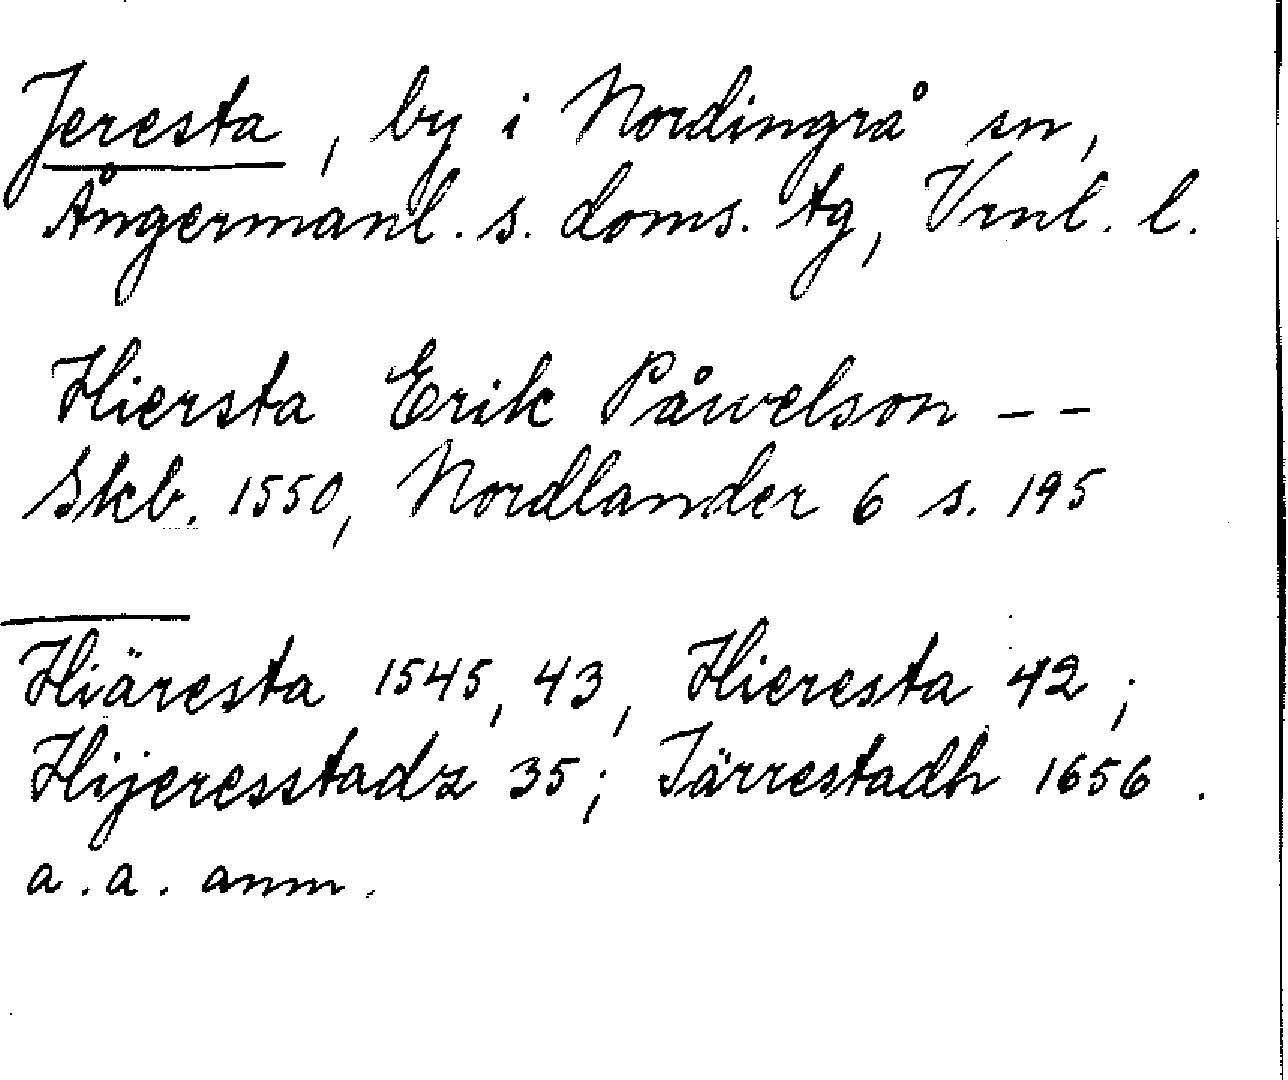 Jeresta, by i Nordingrå sn,
Ångermanl. s. doms. tg, Vrnl. l.
Hiersta Erik Påwelson - -
Skb. 1550, Nordlander 6 s. 195
Hiäresta 1545, 43, Hieresta 42;
Hijeresstadz 35; Järrestadh 1656.
a.a. anm.